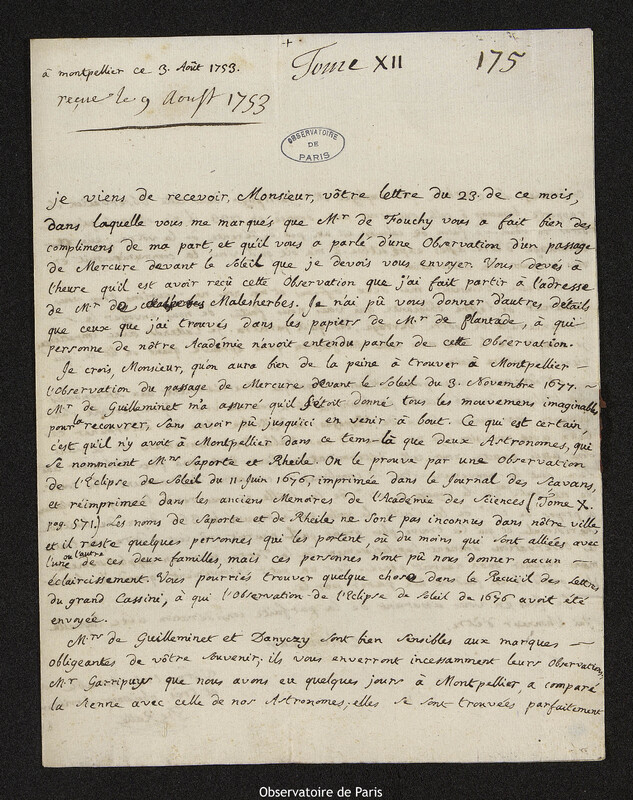 à montpellier ce 3. Août 1753.
Tome XII
175
reçue le 9 Aoust 1753
OBSERVATOIRE
DE
PARIS
je viens de recevoir, Monsieur, vôtre lettre du 23. de ce mois,
dans laquelle vous me marqués que Mr. de Fouchy vous a fait bien des
complimens de ma part, et qu'il vous a parlé d'une Observation d'un passage
de Mercure devant le Soleil que je devois vous envoyer. Vous devés à
l'heure qu'il est avoir reçû cette Observation que j'ai fait partir à l'adresse
de Mr. de Malesherbes. Je n'ai pû vous donner d'autres détails
que ceux que j'ai trouvés dans les papiers de Mr. de Plantade, à qui
personne de nôtre Académie n'avoit entendu parler de cette Observation.
Je crois, Monsieur, qu'on aura bien de la peine à trouver à Montpellier —
l'Observation du passage de Mercure devant le Soleil du 3. Novembre 1677. ~
Mr. de Guilleminet m'a assuré qu'il s'étoit donné tous les mouvemens imaginables
pour la recouvrer, sans avoir pû jusqu'ici en venir à bout. Ce qui est certain,
c'est qu'il n'y avoit à Montpellier dans ce tems-là que deux Astronomes, qui
se nommoient Mrs. Saporte et Rheile. On le prouve par une Observation
de l'Eclipse de Soleil du 11. Juin 1676, imprimée dans le Journal des Sçavans,
et réimprimée dans les anciens Memoires de l'Académie des Sciences (Tome X.
pag. 571.) Les noms de Saporte et de Rheile ne sont pas inconnus dans nôtre ville
et il reste quelques personnes qui les portent, où du moins qui sont alliées avec
l'une ou l'autre de ces deux familles, mais ces personnes n'ont pû nous donner aucun —
éclaircissement. Vous pourriés trouver quelque chose dans le Recüeil des Lettres
du grand Cassini, à qui l'Observation de l'Eclipse de Soleil de 1676 avoit été
envoyée.
Mrs. de Guilleminet et Danyzy sont bien sensibles aux marques —
obligeantes de vôtre souvenir; ils vous enverront incessamment leurs observations,
Mr. Garripuys que nous avons eu quelques jours à Montpellier, a comparé
la sienne avec celle de nos Astronomes; elles se sont trouvées parfaitement
Observatoire de Paris